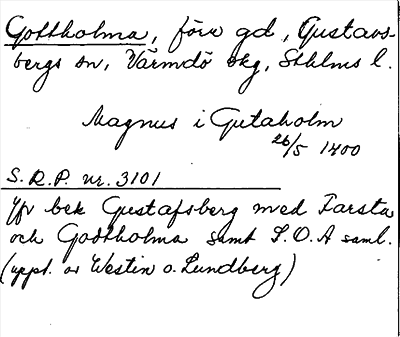 Gottholma, förr gd, Gustavs-
bergs sn, Värmdö skg, Sthlms l.
Magnus i Gutaholm
26/5 1400
S.R.P. nr. 3101
Jfr bek Gustafsberg med Farsta
och Gottholma samt S.O.A saml.
(uppt. av Westin o. Lundberg)